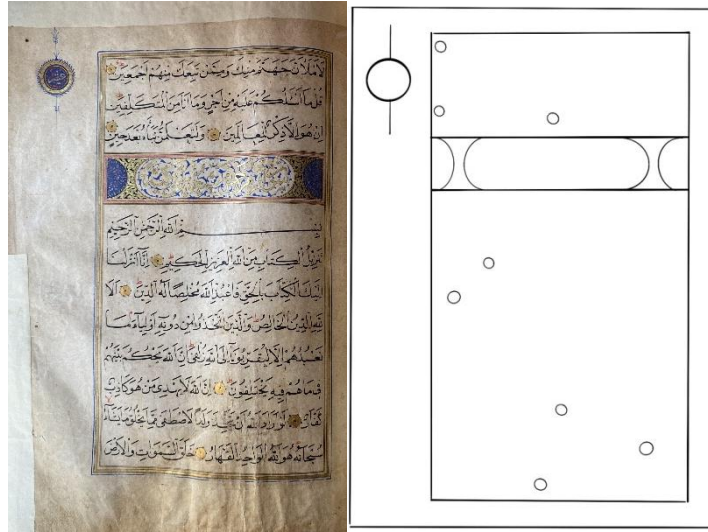 لأملأن جهنم منك وممن تبعك منهم أجمعين
قل ما أسئلكم عليه من أجر وما أنا من المتكلفين
إن هو إلا ذكر للعالمين ولتعلمن نبأه بعد حين
بسم الله الرحمن الرحيم
تنزيل الكتاب من الله العزيز الحكيم إنا أنزلنا
إليك الكتاب بالحق فاعبد الله مخلصا له الدين ألا
لله الدين الخالص والذين اتخذوا من دونه أولياء ما
نعبدهم إلا ليقربونا إلى الله زلفى إن الله يحكم بينهم
في ما هم فيه يختلفون إن الله لا يهدي من هو كاذب
كفار لو أراد الله أن يتخذ ولدا لاصطفى مما يخلق ما يشاء
سبحانه هو الله الواحد القهار خلق السموات والأرض